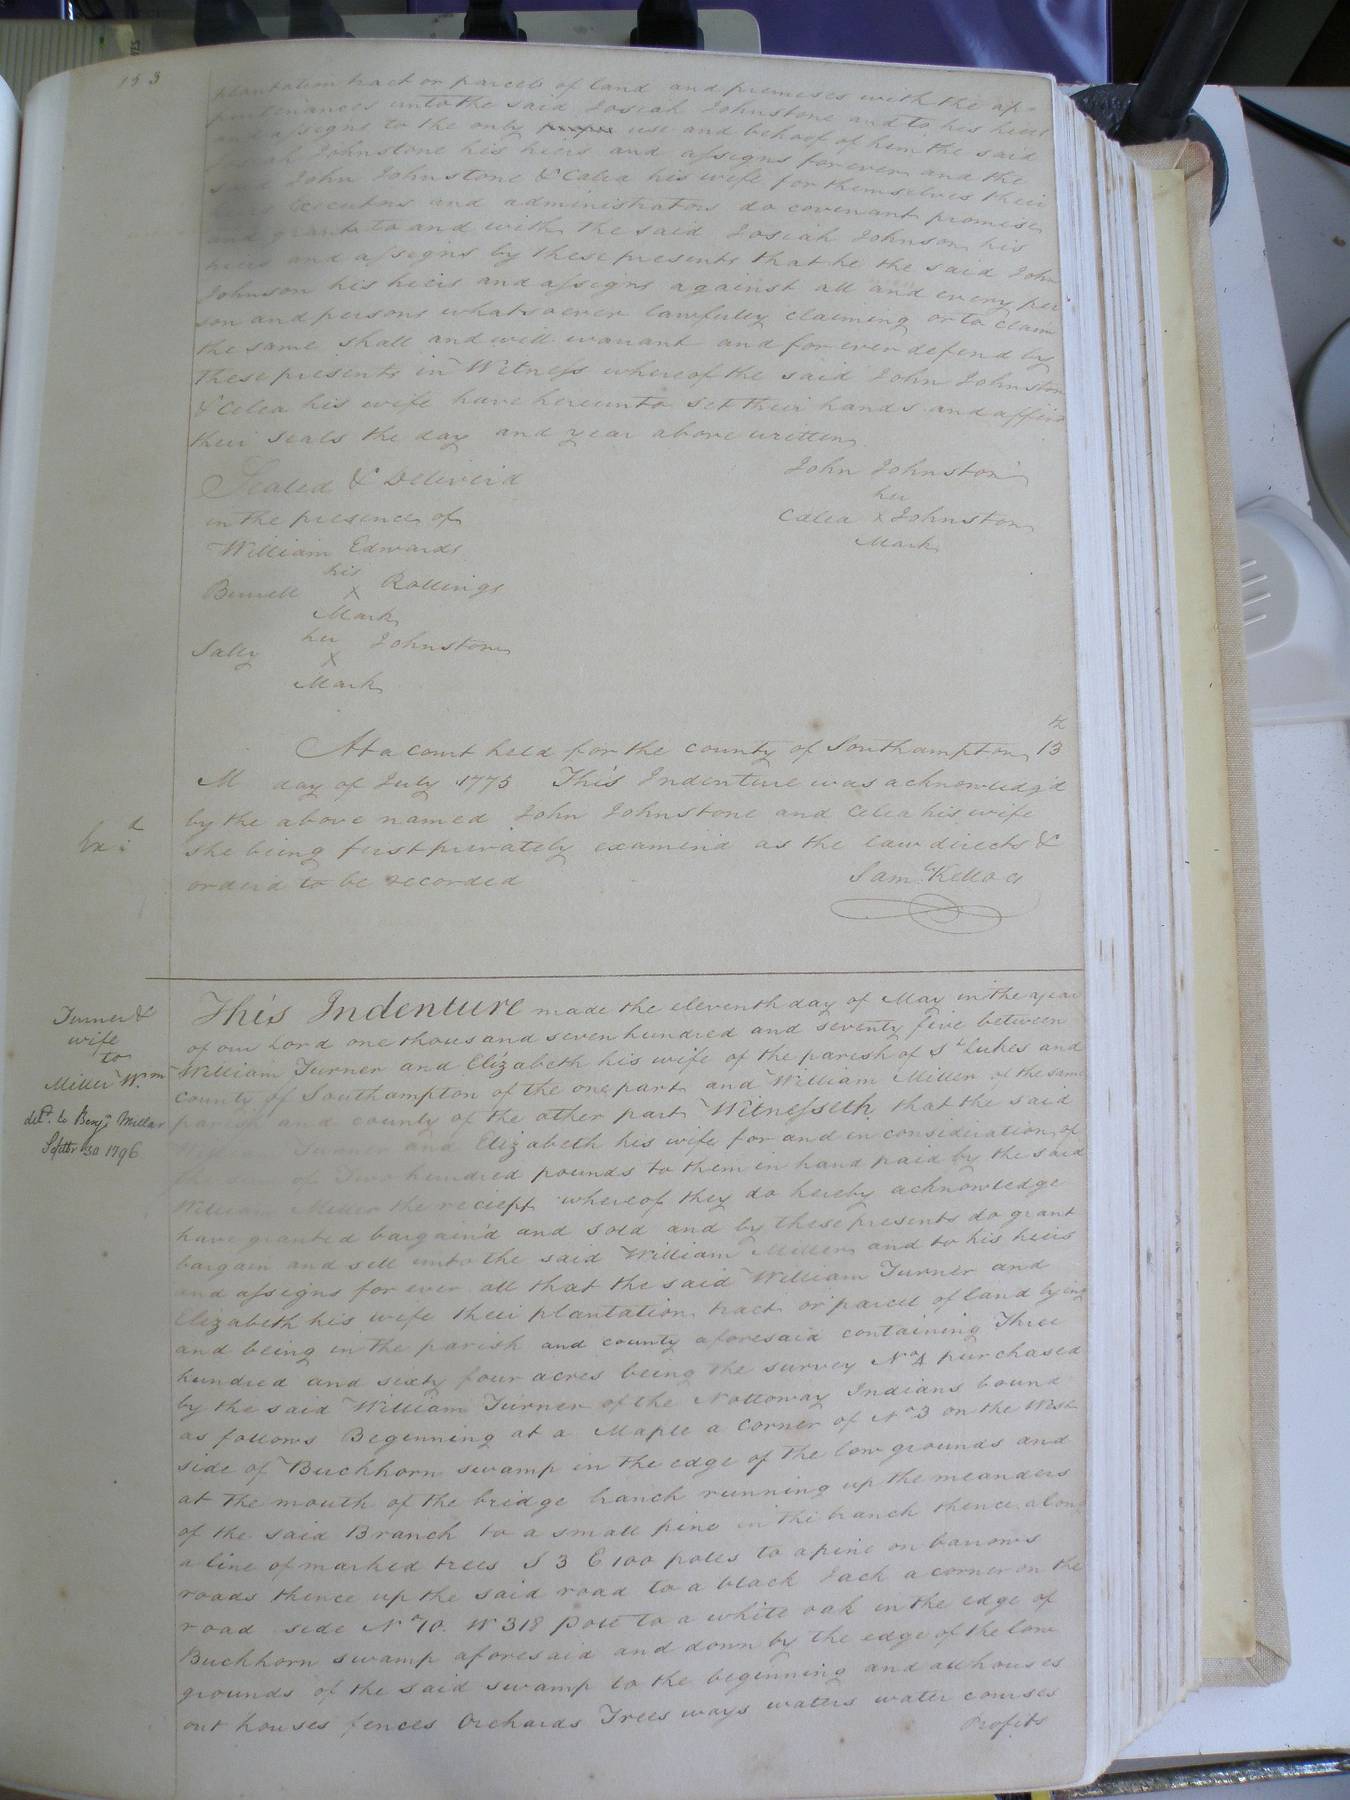 153
plantation tract or parcels of land and premises with the ap-
purtenances unto the said Josiah Johnstone and to his heirs
and assigns to the only proper use and behoof of him the said
Josiah Johnstone his heirs and assigns for ever and the
said John Johnstone & Celea his wife for themselves their
heirs executors and administrators do covenant promise
and grant to and with the said Josiah Johnson his
heirs and assigns by these presents that he the said John
Johnson his heirs and assigns against all and every per
son and persons whatsoever lawfully claiming or to claim
the same shall and will warrant and for ever defend by
these presents in Witness whereof the said John Johnston
& Celea his wife have hereunto set their hands and affixt
their seals the day and year above written
Sealed & Deliver'd
in the presence of
John Johnston
her
Celea x Johnston
Mark
William Edwards
his
Burrell x Rollings
Mark
her
Sally x Johnston
Mark
At a court held for the county of Southampton 13th
day of July 1775 This Indenture was acknowledg'd
by the above named John Johnstone and Celea his wife
she being first privately examin'd as the law directs &
order'd to be recorded
Exd:
Saml Kello Cl
Turner &
wife
to
Miller Wm
deld. to Benjn Millar
Septbr 30 1796
This Indenture made the eleventh day of May in the year
of our Lord one thousand seven hundred and seventy five between
William Turner and Elizabeth his wife of the parish of St Lukes and
county of Southampton of the one part and William Miller of the same
parish and county of the other part Witnesseth that the said
William Turner and Elizabeth his wife for and in consideration of
the sum of Two hundred pounds to them in hand paid by the said
William Miller the reciept whereof they do hereby acknowledge
have granted bargain'd and sold and by these presents do grant
bargain and sell unto the said William Miller and to his heirs
and assigns for ever all that the said William Turner and
Elizabeth his wife their plantation tract or parcel of land lying
and being in the parish and county aforesaid containing Three
hundred and sixty four acres being the survey No 4 purchased
by the said William Turner of the Nottoway Indians bound
as follows Beginning at a Maple a corner of No 3 on the West
side of Buckhorn swamp in the edge of the low grounds and
at the mouth of the bridge branch running up the meanders
of the said Branch to a small pine in the branch thence along
a line of marked trees S 3 E 100 poles to a pine on barrows
roads thence up the said road to a black Jack a corner on the
road side No 70. W 318 pole to a white oak in the edge of
Buckhorn swamp aforesaid and down by the edge of the low
grounds of the said swamp to the beginning and all houses
out houses fences Orchards Trees ways waters water courses
Profits